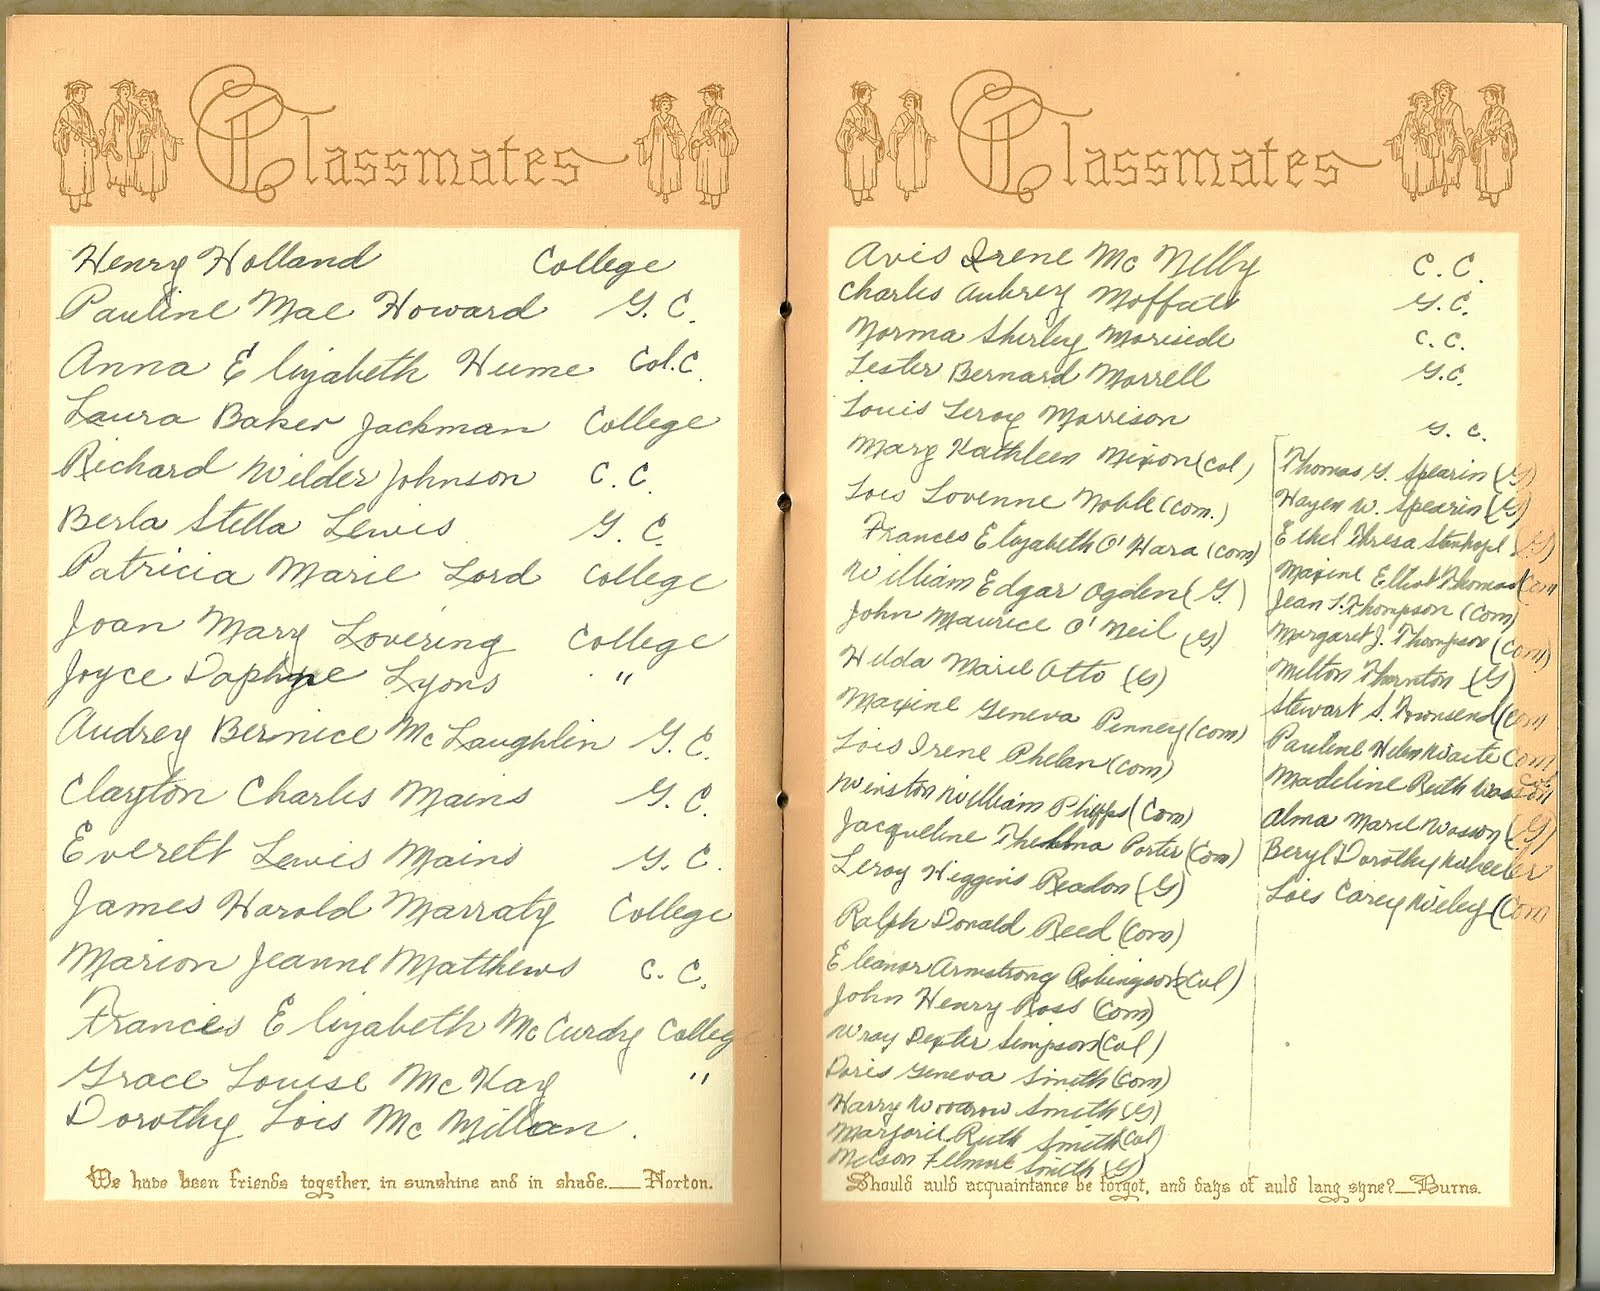 Classmates
Henry Holland College
Pauline Mae Howard G. C.
Anna Elizabeth Hume Col. C.
Laura Baker Jackman College
Richard Wilder Johnson C. C.
Berla Stella Lewis G. C.
Patricia Marie Lord College
Joan Mary Lovering College
Joyce Daphne Lyons "
Audrey Bernice McLaughlin G. C.
Clayton Charles Mains G. C.
Everett Lewis Mains G. C.
James Harold Marraty College
Marion Jeanne Matthews C. C.
Frances Elizabeth McCurdy College
Grace Louise McKay "
Dorothy Lois McMillan.
We have been friends together, in sunshine and in shade.__Norton.
Classmates
Avis Irene McNelly C. C.
Charles Aubrey Moffatt G. C.
Norma Shirley C. C.
Lester Bernard Morrell G. C.
Louis Leroy Morrison G. C.
Mary Kathleen Nixon (Col)
Lois Lovenne Noble (Com.)
Frances Elizabeth O'Hara (Com)
William Edgar Ogden (G.)
John Maurice O'Neil (G)
Hilda Marie Otto (G)
Maxine Geneva Penney (Com)
Lois Irene Phelan (Com)
Winston William Phipps (Com)
Jacqueline Thelma Porter (Com)
Leroy Higgins Readon (G)
Ralph Donald Reed (Com)
Eleanor Armstrong Robinson (Col)
John Henry Ross (Com)
Wray Dexter Simpson (Col)
Doris Geneva Smith (Com)
Harry Woodrow Smith (G)
Marjorie Ruth Smith (Col)
Nelson Fillmore Smith (G)
Thomas G. Spearin (G)
Hayen W. Spearin (G)
Ethel Thresa (G)
Maxine Elliot Thomas (Com
Jean L. Thompson (Com)
Margaret J. Thompson (Com)
Milton Thornton (G)
Stewart S. Townsend (Com
Pauline Helen Waite Com
Madeline Ruth Wasson Col
Alma Marie Wasson (G)
Beryl Dorothy Wheeler
Lois Carey Wiley (Com
Should auld acquaintance be forgot, and days of auld lang syne?__Burns.